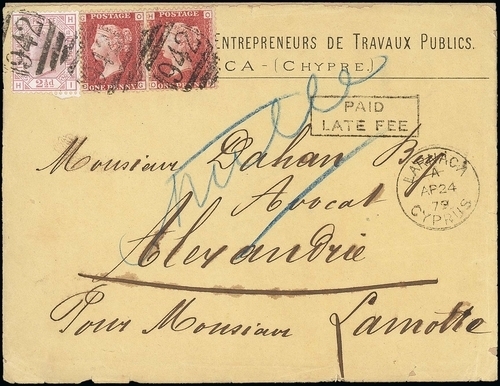 942 942
POSTAGE POSTAGE
2½d ONE PENNY ONE PENNY
ENTREPRENEURS DE TRAVAUX PUBLICS.
CA - (CHYPRE.)
PAID
LATE FEE
Monsieur Dahan By
Avocat
Alexandrie
Pour Monsieur Lamotte
LARNACA
A
AP 24
79
CYPRUS